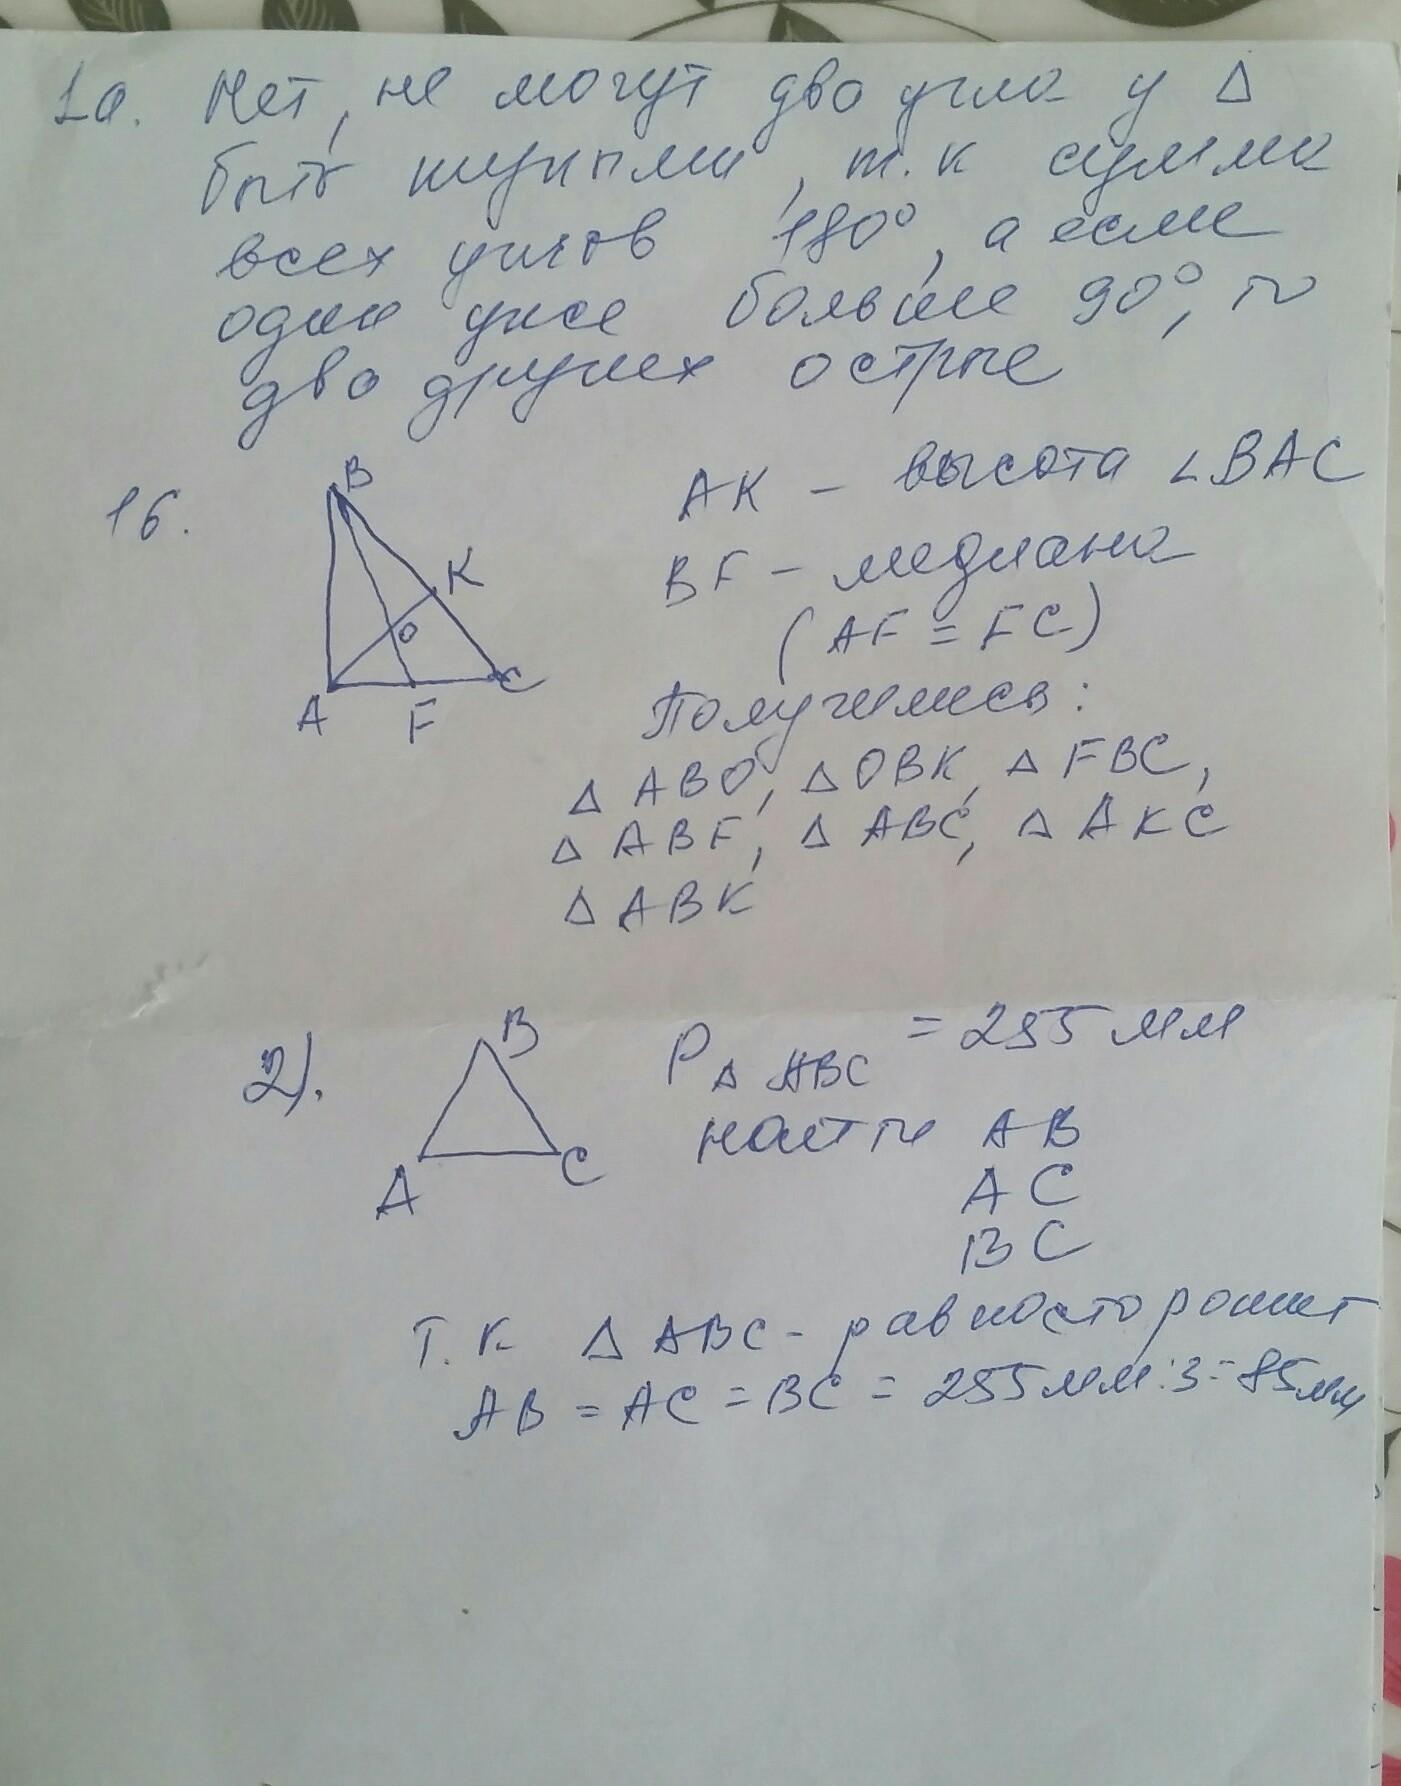 1а. Нет, не могут два угла у Δ
быть тупыми, т.к сумма
всех углов 180°, а если
один уже больше 90°, то
два других острые
1б.
B
K
O
A
F
C
AK - высота ∠BAC
BF - медиана
(AF = FC)
Получились:
Δ ABO, Δ OBK, Δ FBC,
Δ ABF, Δ ABC, Δ AKC
Δ ABK
2).
B
A
C
P Δ ABC = 255 мм
найти AB
AC
BC
Т.к Δ ABC - равносторонт
AB = AC = BC = 255мм:3=85мм